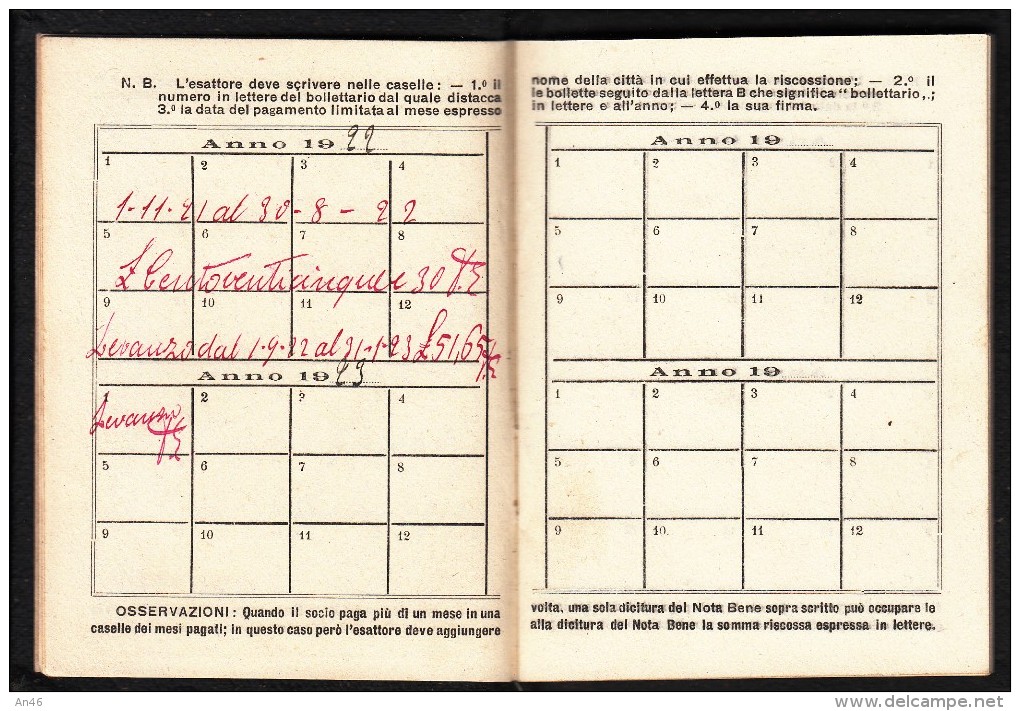 N. B. L'esattore deve scrivere nelle caselle: — 1.º il
numero in lettere del bollettario dal quale distacca
3.º la data del pagamento limitata al mese espresso
Anno 1922
1 2 3 4
1-11-21 al 30-8-22
5 6 7 8
£ Centoventicinque e 30
9 10 11 12
Levanzo dal 1-9-22 al 31-1-23 £51,65
Anno 1923
1 2 3 4
Levanzo
5 6 7 8
9 10 11 12
OSSERVAZIONI: Quando il socio paga più di un mese in una
caselle dei mesi pagati; in questo caso però l'esattore deve aggiungere
nome della città in cui effettua la riscossione; — 2.º il
le bollette seguito dalla lettera B che significa "bollettario,.;
in lettere e all'anno; — 4.º la sua firma.
Anno 19
1 2 3 4
5 6 7 8
9 10 11 12
Anno 19
1 2 3 4
5 6 7 8
9 10. 11 12
volta, una sola dicitura del Nota Bene sopra scritto può occupare le
alla dicitura del Nota Bene la somma riscossa espressa in lettere.
An46
delcampe.net